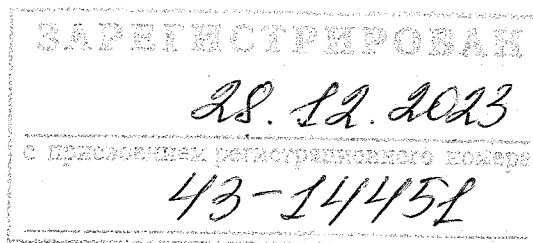 ЗАРЕГИСТРИРОВАН
28.12.2023
с присвоением регистрационного номера
43-14451